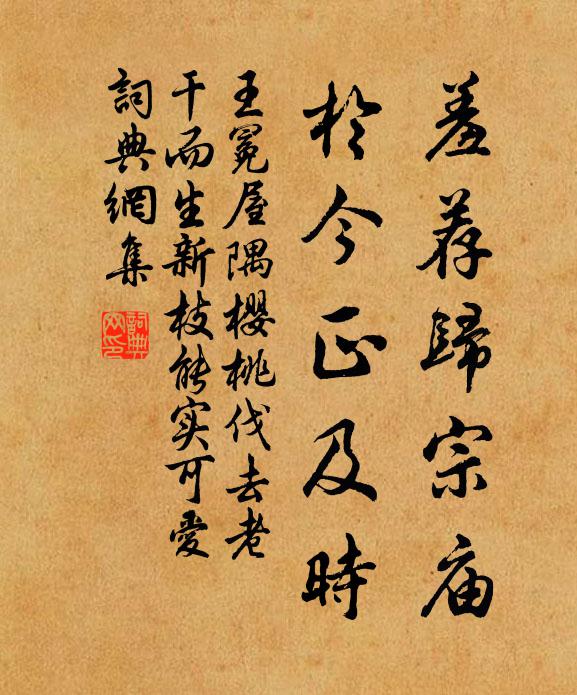 羞荐歸宗庙
於今正及時
王冕屋隅櫻桃伐去老
干而生新枝能实可愛
詞典網集
詞典
网印